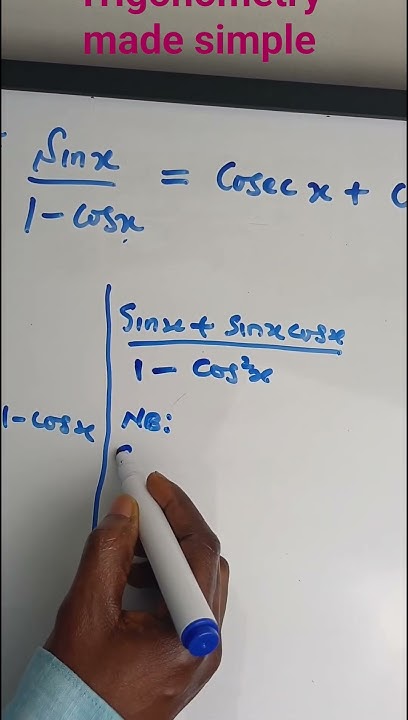 Trigonometry
made simple
Sinx
1 - cosx
= Cosec x +
Sinx + Sinx cosx
1 - Cos²x
1 - cosx
NB: